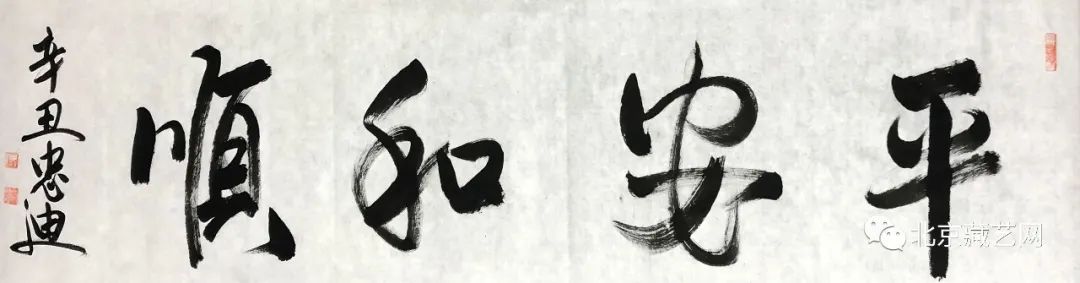 平安和順
辛丑忠迪
北京藏艺网